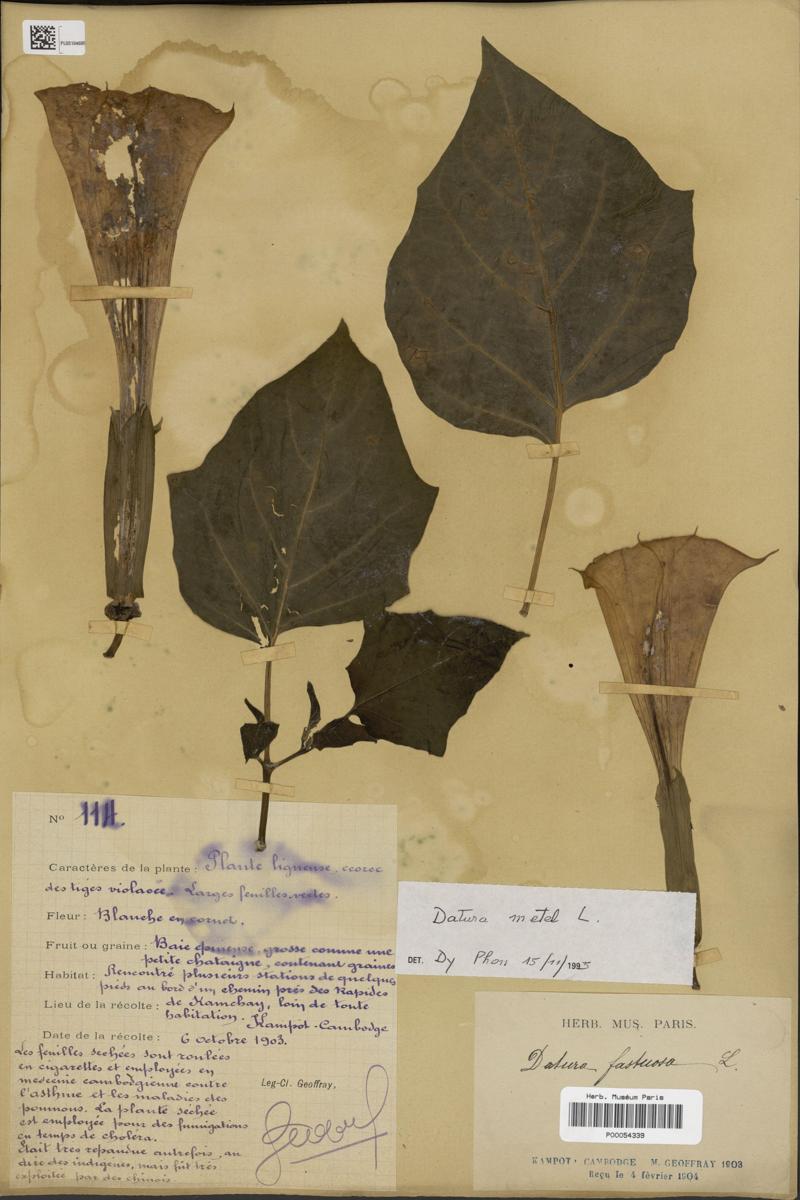 Nº 114.
Caractères de la plante : Plante ligneuse, ecorce
des tiges violacée. Larges feuilles vertes.
Fleur : Blanche en cornet.
Fruit ou graine : Baie épineuse, grosse comme une
petite chataigne, contenant graines
Habitat : Rencontré plusieurs stations de quelques
pieds au bord d'un chemin près des Rapides
Lieu de la récolte : de Kamchay, loin de toute
habitation. Kampot-Cambodge
Date de la récolte : 6 octobre 1903.
Les feuilles sechées sont roulées
en cigarettes et employées en
medecine cambodgienne contre
l'asthme et les maladies des
poumons. La plante sechée
est employée pour des fumigations
en temps de choléra.
Etait très repandue autrefois, au
dire des indigenes, mais fut très
exploitée par des chinois.
Leg-Cl. Geoffray,
Datura metel L.
DET. Dy Phon 15/11/1995
HERB. MUS. PARIS.
Datura fastuosa L.
Herb. Muséum Paris
P00054339
KAMPOT : CAMBODGE M. GEOFFRAY 1903
Reçu le 4 février 1904